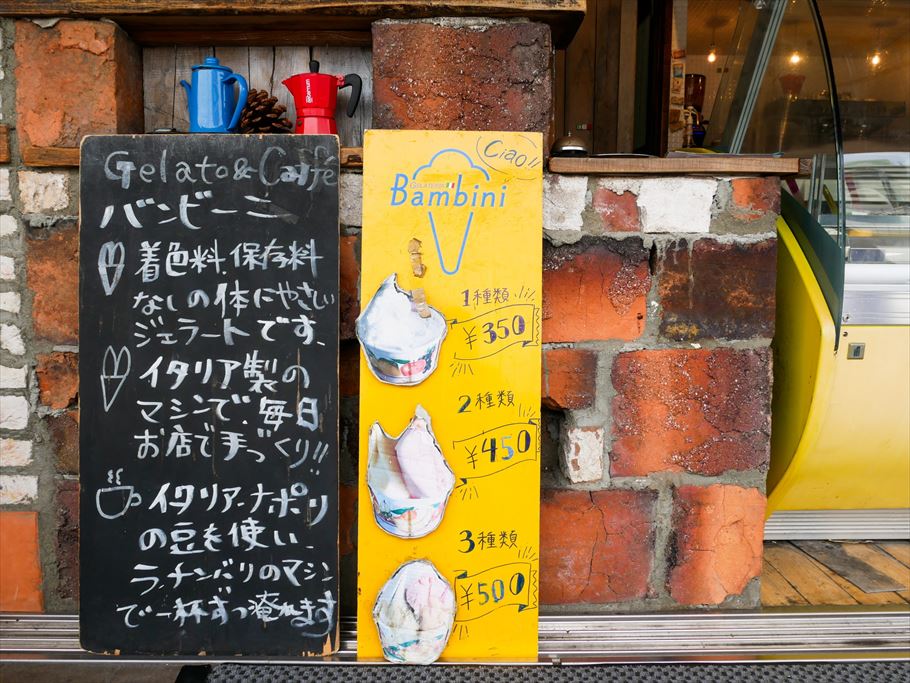 Gelato&Caffé
バンビーニ
着色料、保存料
なしの体にやさしい
ジェラートです。
イタリア製の
マシンで、毎日
お店で手づくり!!
イタリア・ナポリ
の豆を使い、
ラ・ナンバリのマシン
で一杯ずつ淹れます
Ciao!!
GELATERIA
Bambini
1種類
¥350
2種類
¥450
3種類
¥500